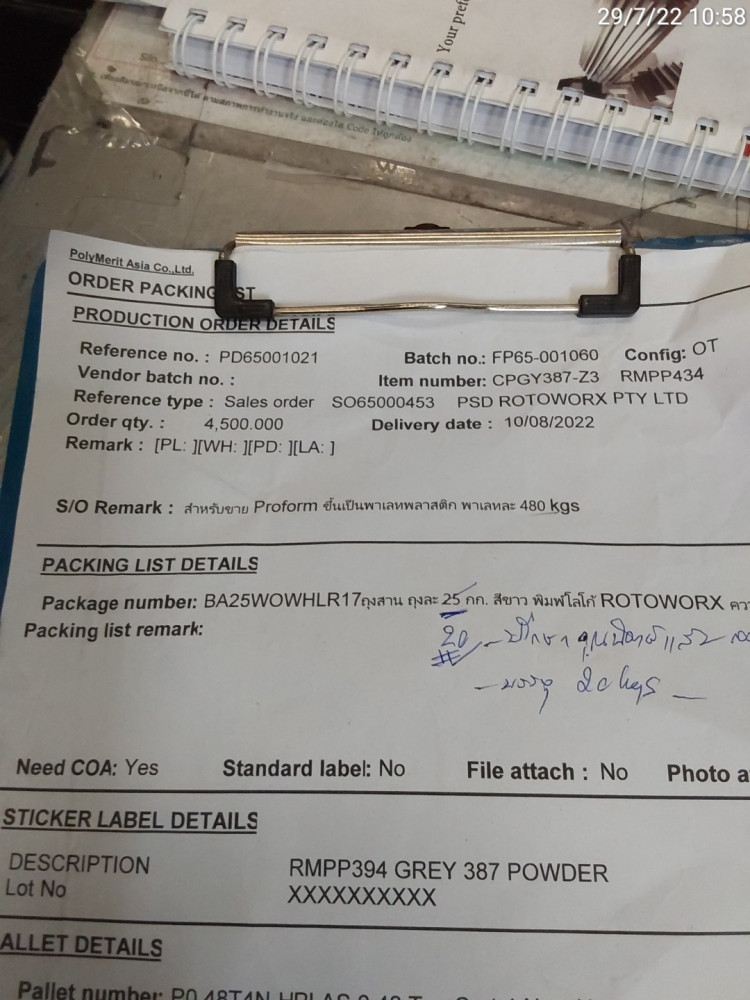 29/7/22 10:58
Your pref
PolyMerit Asia Co.,Ltd.
ORDER PACKING LIST
PRODUCTION ORDER DETAILS
Reference no. : PD65001021 Batch no.: FP65-001060 Config: OT
Vendor batch no. : Item number: CPGY387-Z3 RMPP434
Reference type : Sales order SO65000453 PSD ROTOWORX PTY LTD
Order qty. : 4,500.000 Delivery date : 10/08/2022
Remark : [PL: ][WH: ][PD: ][LA: ]
S/O Remark : สำหรับขาย Proform ขึ้นเป็นพาเลทพลาสติก พาเลทละ 480 kgs
PACKING LIST DETAILS
Package number: BA25WOWHLR17ถุงสาน ถุงละ 25 กก. สีขาว พิมพ์โลโก้ ROTOWORX คว
Packing list remark:
20
- บรรจุ 20 kgs -
Need COA: Yes Standard label: No File attach : No Photo a
STICKER LABEL DETAILS
DESCRIPTION RMPP394 GREY 387 POWDER
Lot No XXXXXXXXXX
ALLET DETAILS
Pallet number: